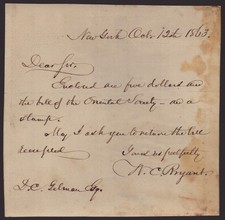 New York Oct. 12th 1863.
Dear Sir,
Enclosed are five dollars and
the bill of the Oriental Society – and a
stamp.
May I ask you to return the bill
receipted
Yours respectfully
W. C. Bryant.
D. C. Gilman Esq.